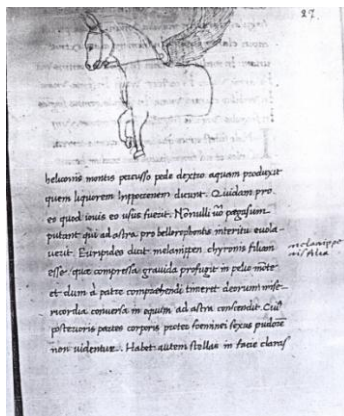 27.
heliconis montis percusso pede dextro aquam produxit
quem liquorem Ippocrenem dicunt. Quidam pro
eo quod iouis eo usus fuerit. Nonulli uo pegasum
putant qui ad astra pro bellerophontis interitu euola
uerit. Euripides dicit melanippen chyronis filiam
esse que compressa grauida profugit in pelio mote
et dum à patre comprehendi timeret deorum mise-
ricordia conuersa in equum ad astra conscendit. Cui9
posterioris partes corporis protea foeminei sexus
non uidentur. Habet autem stellas in facie claras
melanippe